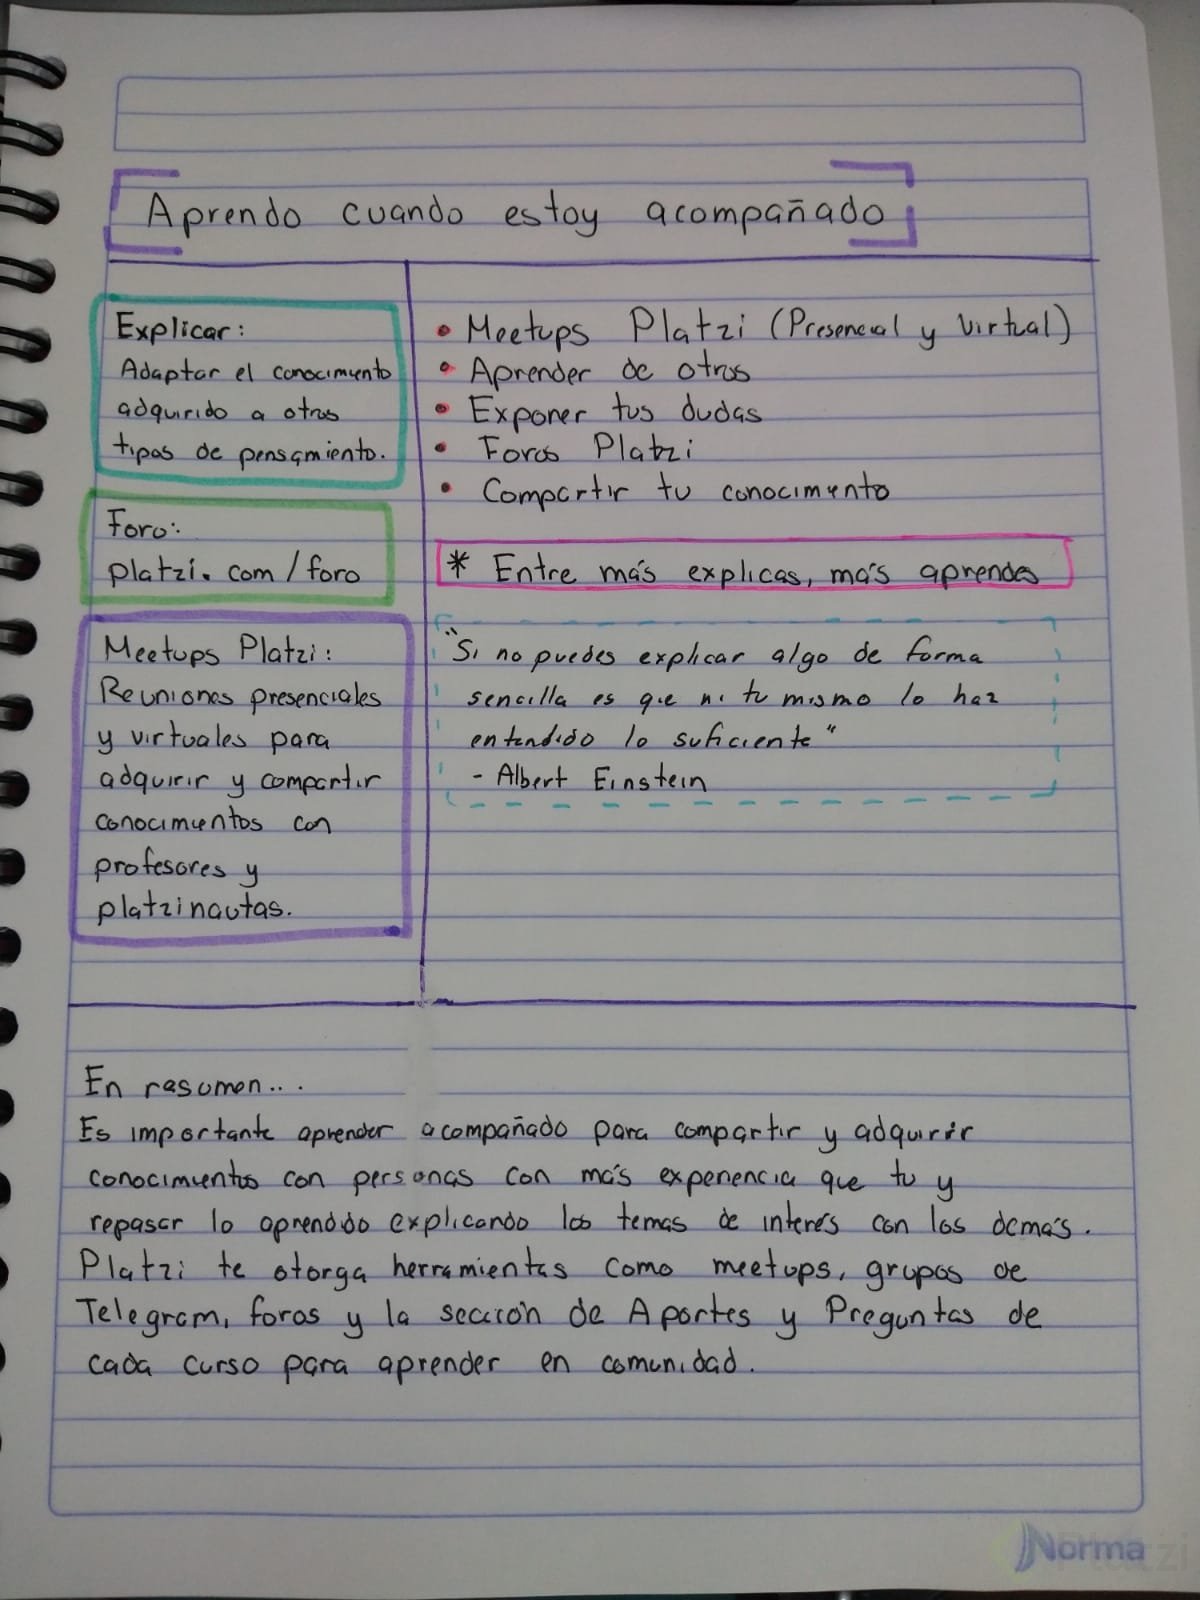 Aprendo cuando estoy acompañado
Explicar:
Adaptar el conocimiento
adquirido a otros
tipos de pensamiento.
Foro:
platzi.com/foro
Meetups Platzi:
Reuniones presenciales
y virtuales para
adquirir y compartir
conocimientos con
profesores y
platzinautas.
• Meetups Platzi (Presencial y Virtual)
• Aprender de otros
• Exponer tus dudas
• Foros Platzi
• Compartir tu conocimiento
* Entre más explicas, más aprendes
"Si no puedes explicar algo de forma
sencilla es que ni tu mismo lo haz
entendido lo suficiente"
- Albert Einstein
En resumen...
Es importante aprender acompañado para compartir y adquirir
conocimientos con personas con más experiencia que tu y
repasar lo aprendido explicando los temas de interés con los demás.
Platzi te otorga herramientas como meetups, grupos de
Telegram, foros y la sección de Aportes y Preguntas de
cada curso para aprender en comunidad.
Norma
Platzi